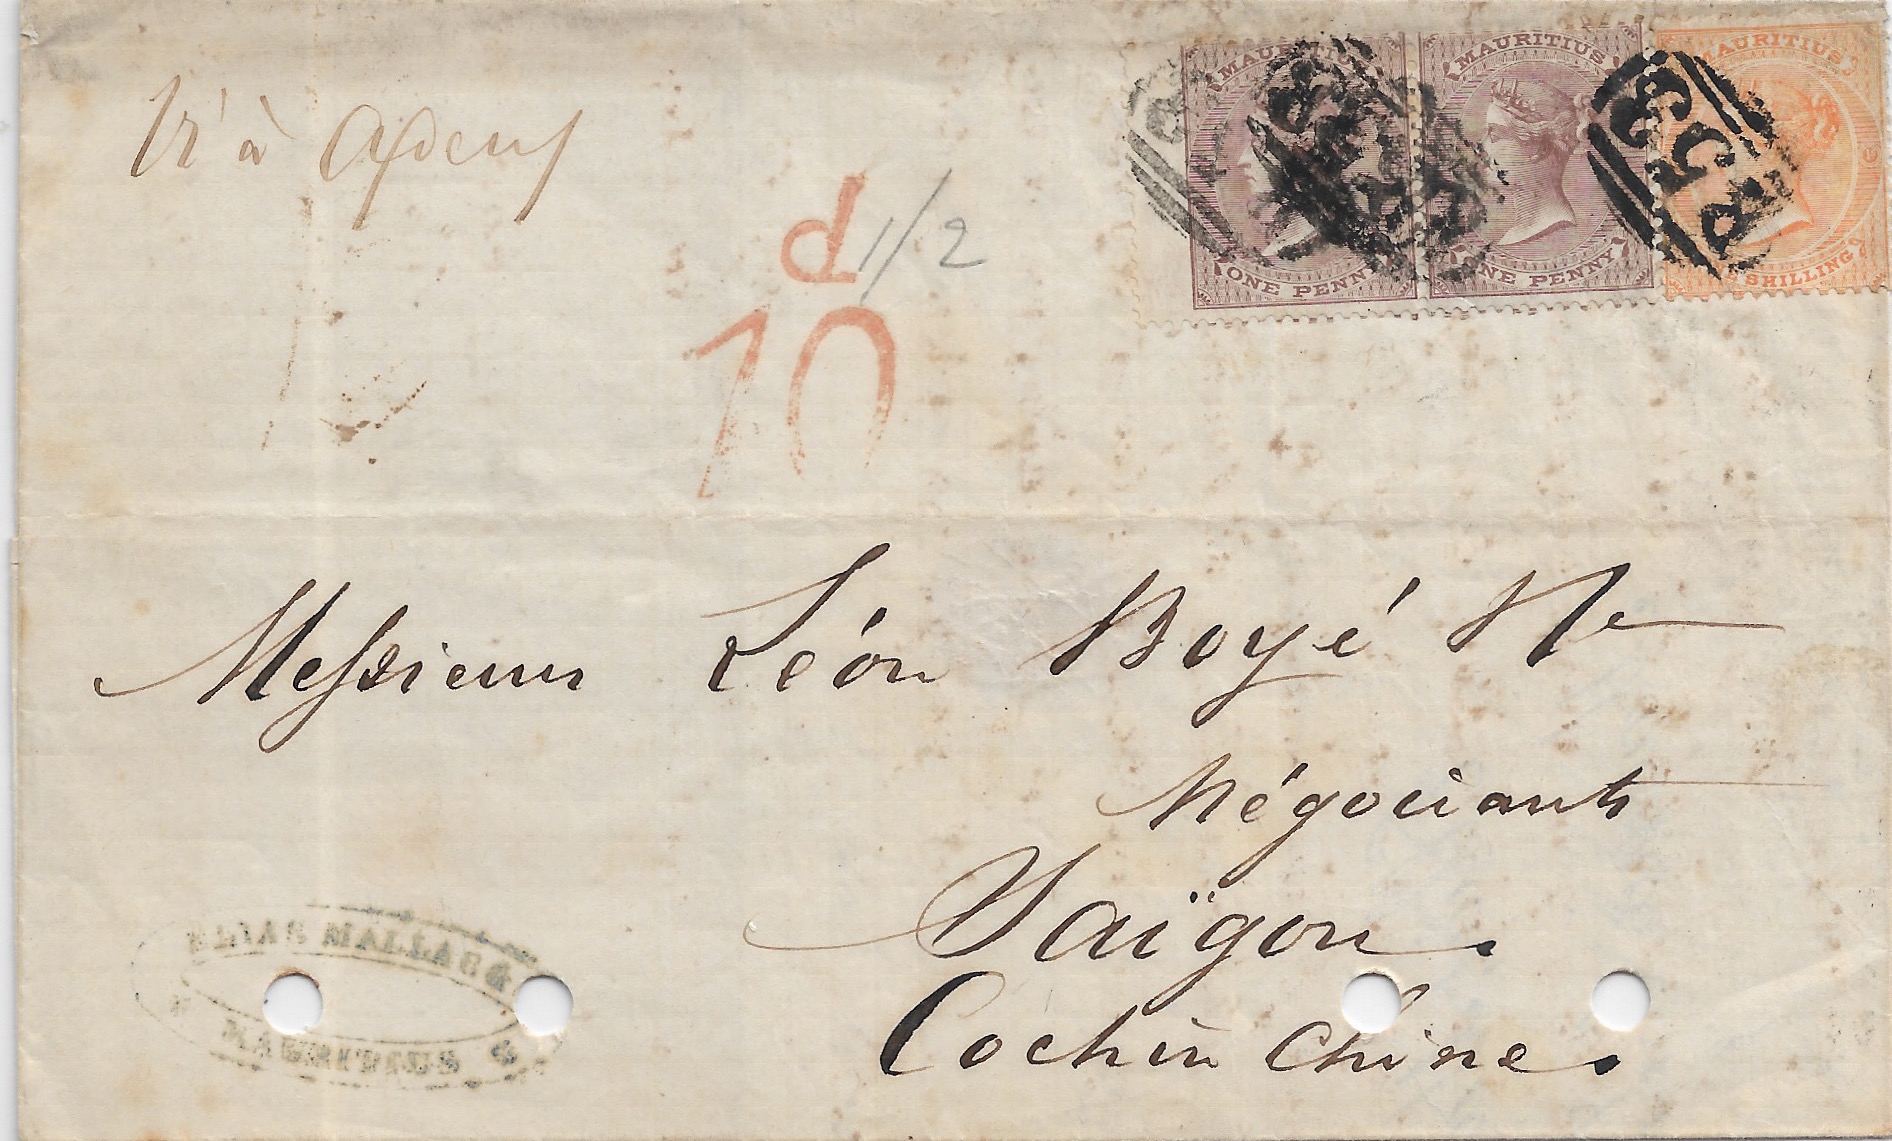 Via Aden
MAURITIUS
ONE PENNY
MAURITIUS
ONE PENNY
MAURITIUS
SHILLING
B53
d 1/2
10
Messieurs Léon Boyé
Négociants
Saïgon.
Cochin Chine.
ELIAS MALLAC &
MAURITIUS